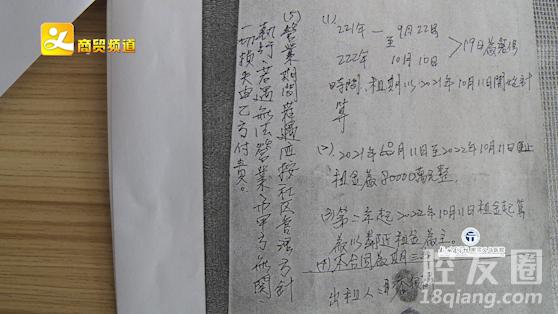 商贸频道
(1)
221年一9月22日
至
222年 10月10日
>19日為整理
時間,租期以2021年10月11日開始計
算
(2)、2021年10月11日至2022年10月11日止
租金為80000萬元整.
(3)第二年起2022年10月11日租金起算
為以鄰近租金為主。
(4)本合同為期三
出租人:
(5)營業期間若遇
按社区管理方針
執行,若遇無法營業,市甲方無関
一切损失由乙方付责。
腔友圈
18qiang.com